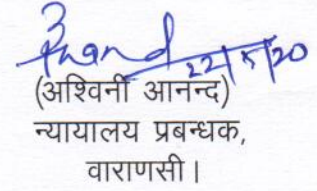 Anand
22/5/20
(अश्विनी आनन्द)
न्यायालय प्रबन्धक,
वाराणसी।